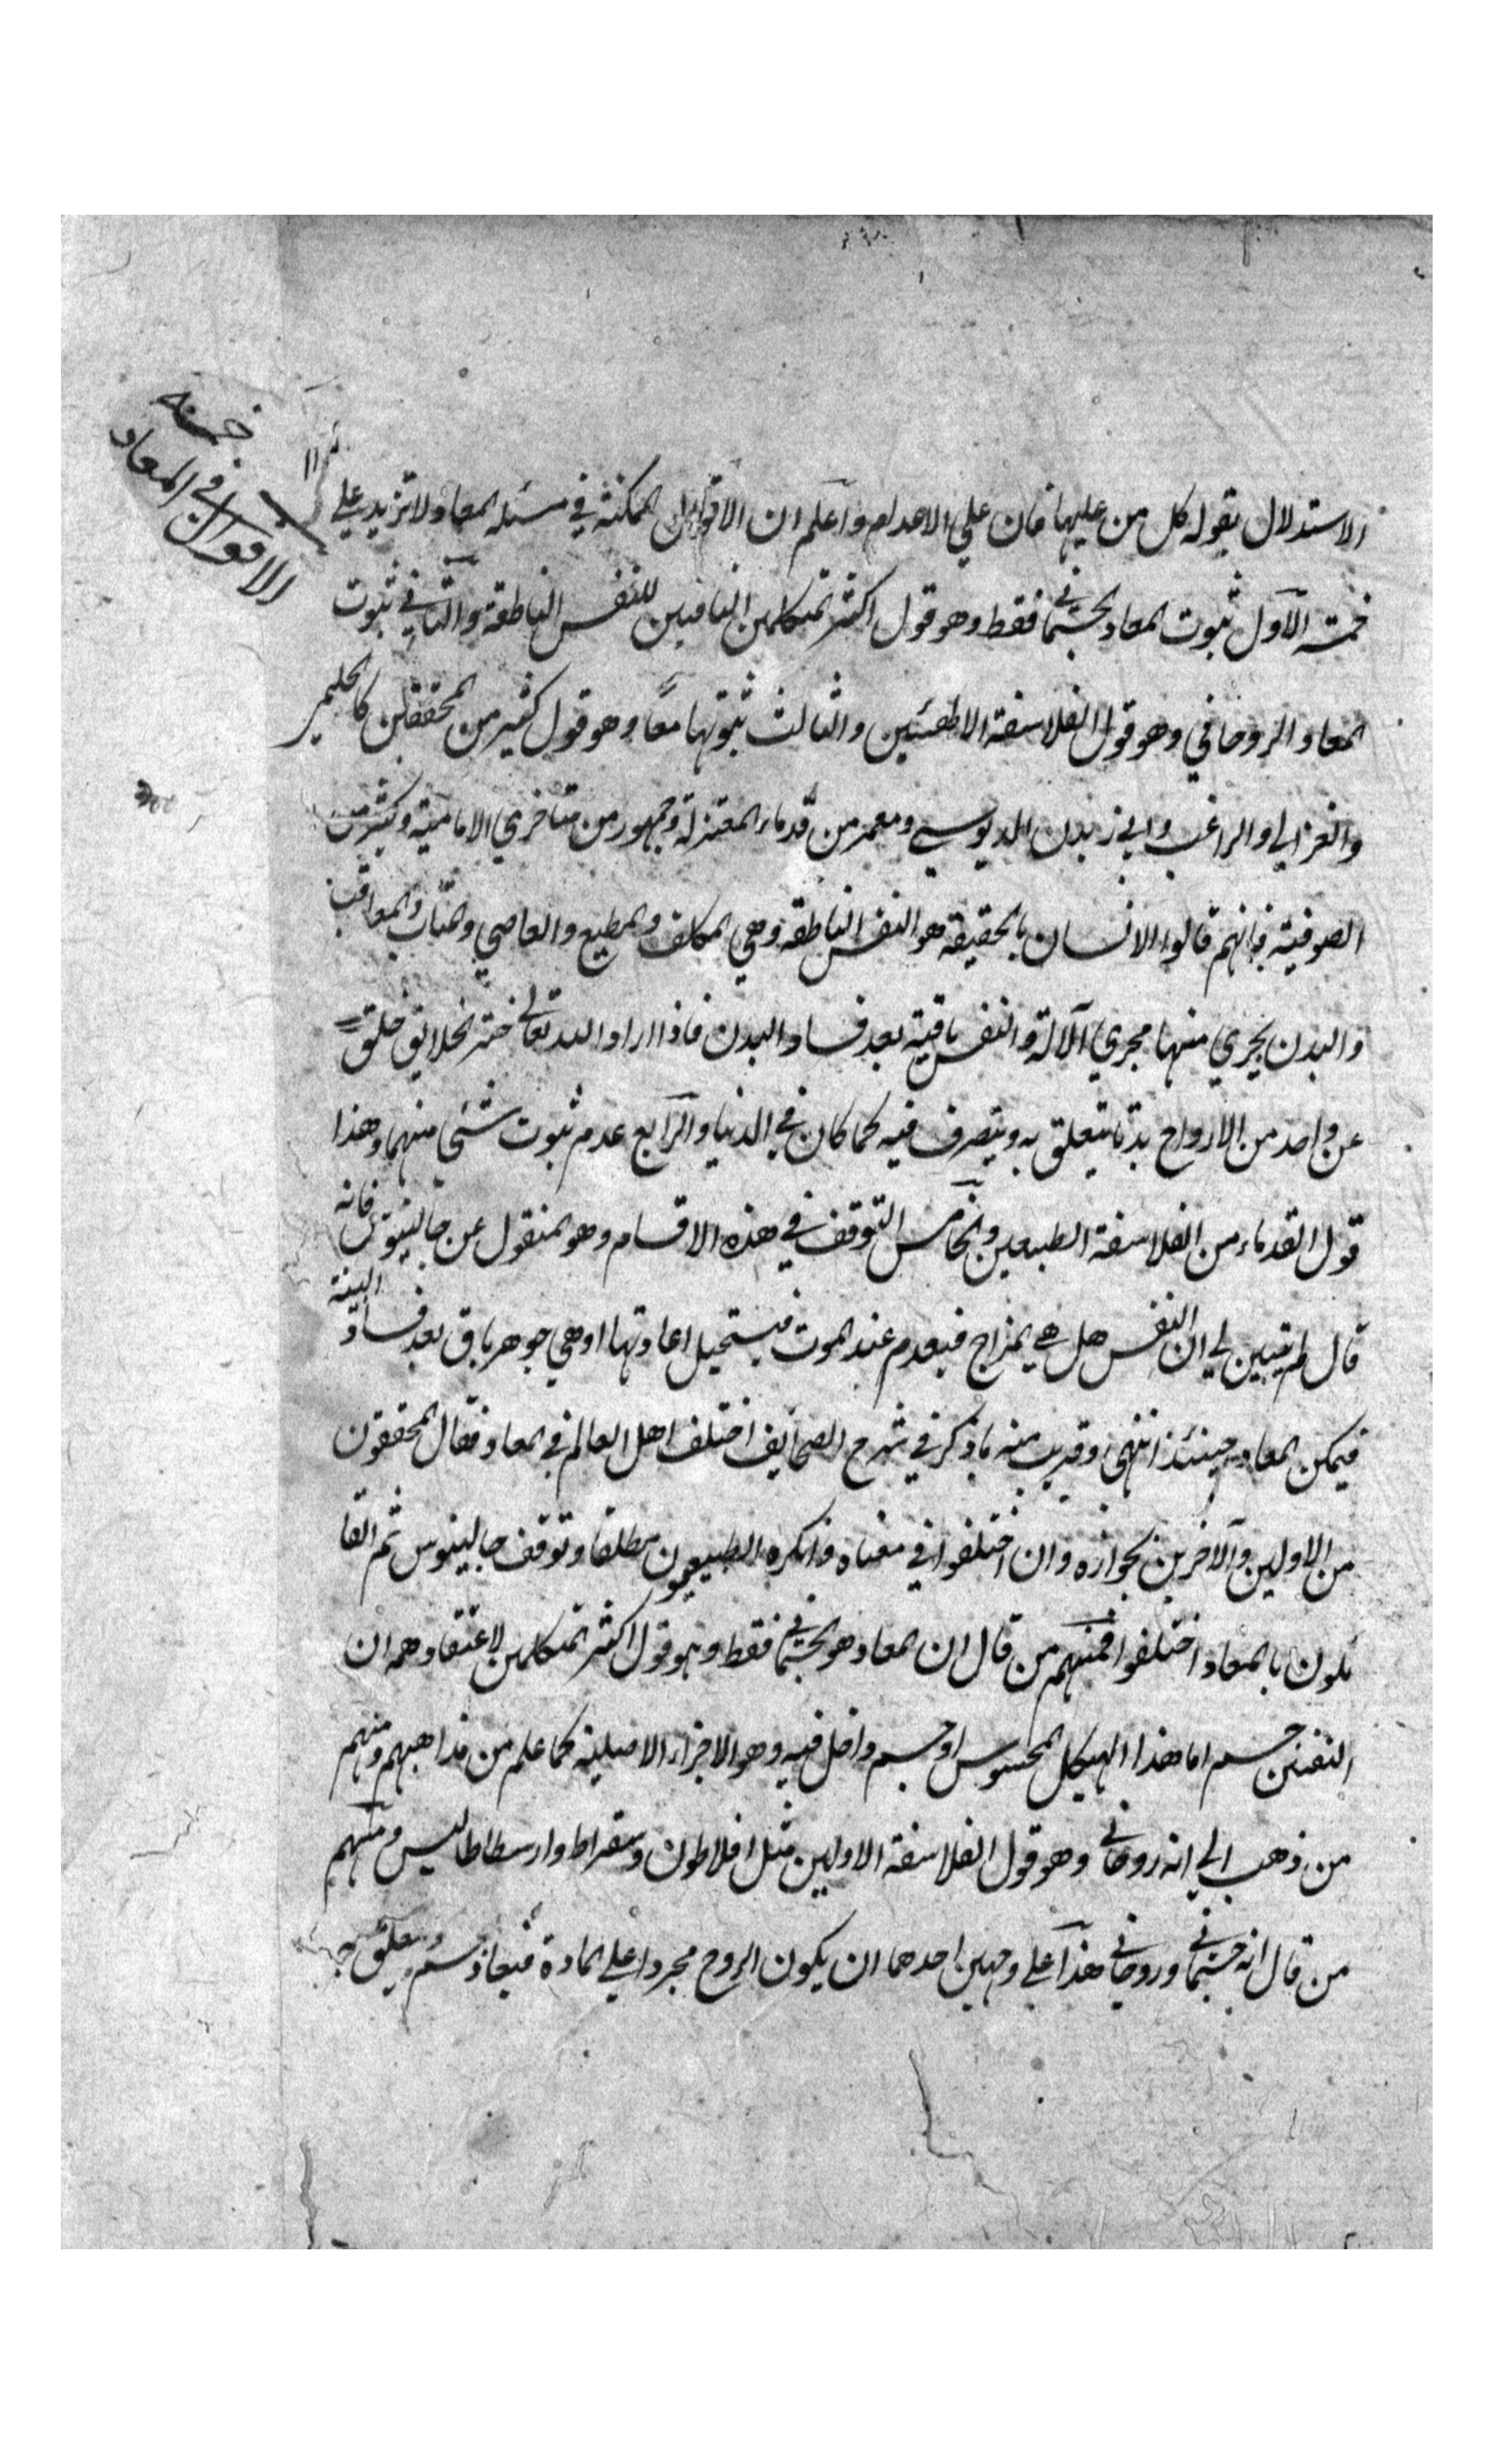 الاقوال في المعاد
خمسة
الاستدلال بقوله كل من عليها فان علي الاعدام واعلم ان الاقوال الممكنة في مسئله المعاد لا تزيد علي
خمسة الاول ثبوت المعاد الجسماني فقط وهو قول اكثر المتكلمين النافين للنفس الناطقة والثاني ثبوت
المعاد الروحاني وهو قول الفلاسفة الالهيين والثالث ثبوتهما معا وهو قول كثير من المحققين كالحليمي
والغزالي والراغب وابي زيد الدبوسي ومعمر من قدماء المعتزلة وجمهور من متاخري الامامية وكثير من
الصوفية فانهم قالوا الانسان بالحقيقة هو النفس الناطقة وهي المكلف والمطيع والعاصي والمثاب والمعاقب
والبدن يجري منها مجري الآلة والنفس باقية بعد فساد البدن فاذا اراد الله تعالي حشر الخلايق خلق
من واحد من الارواح بدنا يتعلق به ويتصرف فيه كما كان في الدنيا والرابع عدم ثبوت شئ منهما وهذا
قول القدماء من الفلاسفة الطبيعيين والخامس التوقف في هذه الاقسام وهو المنقول عن جالينوس فانه
قال لم يتبين لي ان النفس هل هي المزاج فيعدم عند الموت فيستحيل اعادتها او هي جوهر باق بعد فساد البنية
فيمكن المعاد حينئذ انتهي وقريب منه ما ذكر في شرح الصحايف اختلف اهل العالم في المعاد فقال المحققون
من الاولين والآخرين بجوازه وان اختلفوا في معناه وانكره الطبيعيون مطلقا وتوقف جالينوس ثم القا
ئلون بالمعاد اختلفوا فمنهم من قال ان المعاد هو الجسماني فقط وهو قول اكثر المتكلمين لاعتقادهم ان
النفس جسم اما هذا الهيكل المحسوس او جسم داخل فيه وهو الاجزاء الاصلية كما علم من مذاهبهم ومنهم
من ذهب الي انه روحاني وهو قول الفلاسفة الاولين مثل افلاطون وسقراط وارسطاطاليس ومنهم
من قال انه جسماني وروحاني هذا علي وجهين احدهما ان يكون الروح مجردا علي المادة فيعاد جسم ويتعلق به